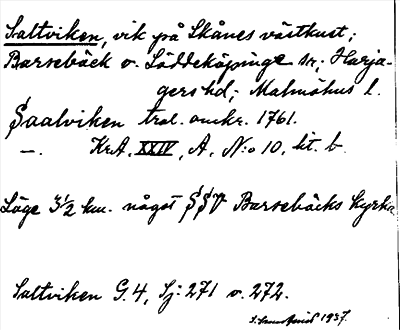 Saltviken, vik på Skånes västkust;
Barsebäck o. Löddeköpinge sr; Harja-
gers hd; Malmöhus l.
Saalviken trol. omkr. 1761.
—. Kr.A. XXIV, A, N:o 10, lit. b.
Läge 3 1/2 km. något SSV Barsebäcks kyrka
Saltviken G. 4, Sj: 271 o. 272.
1937.